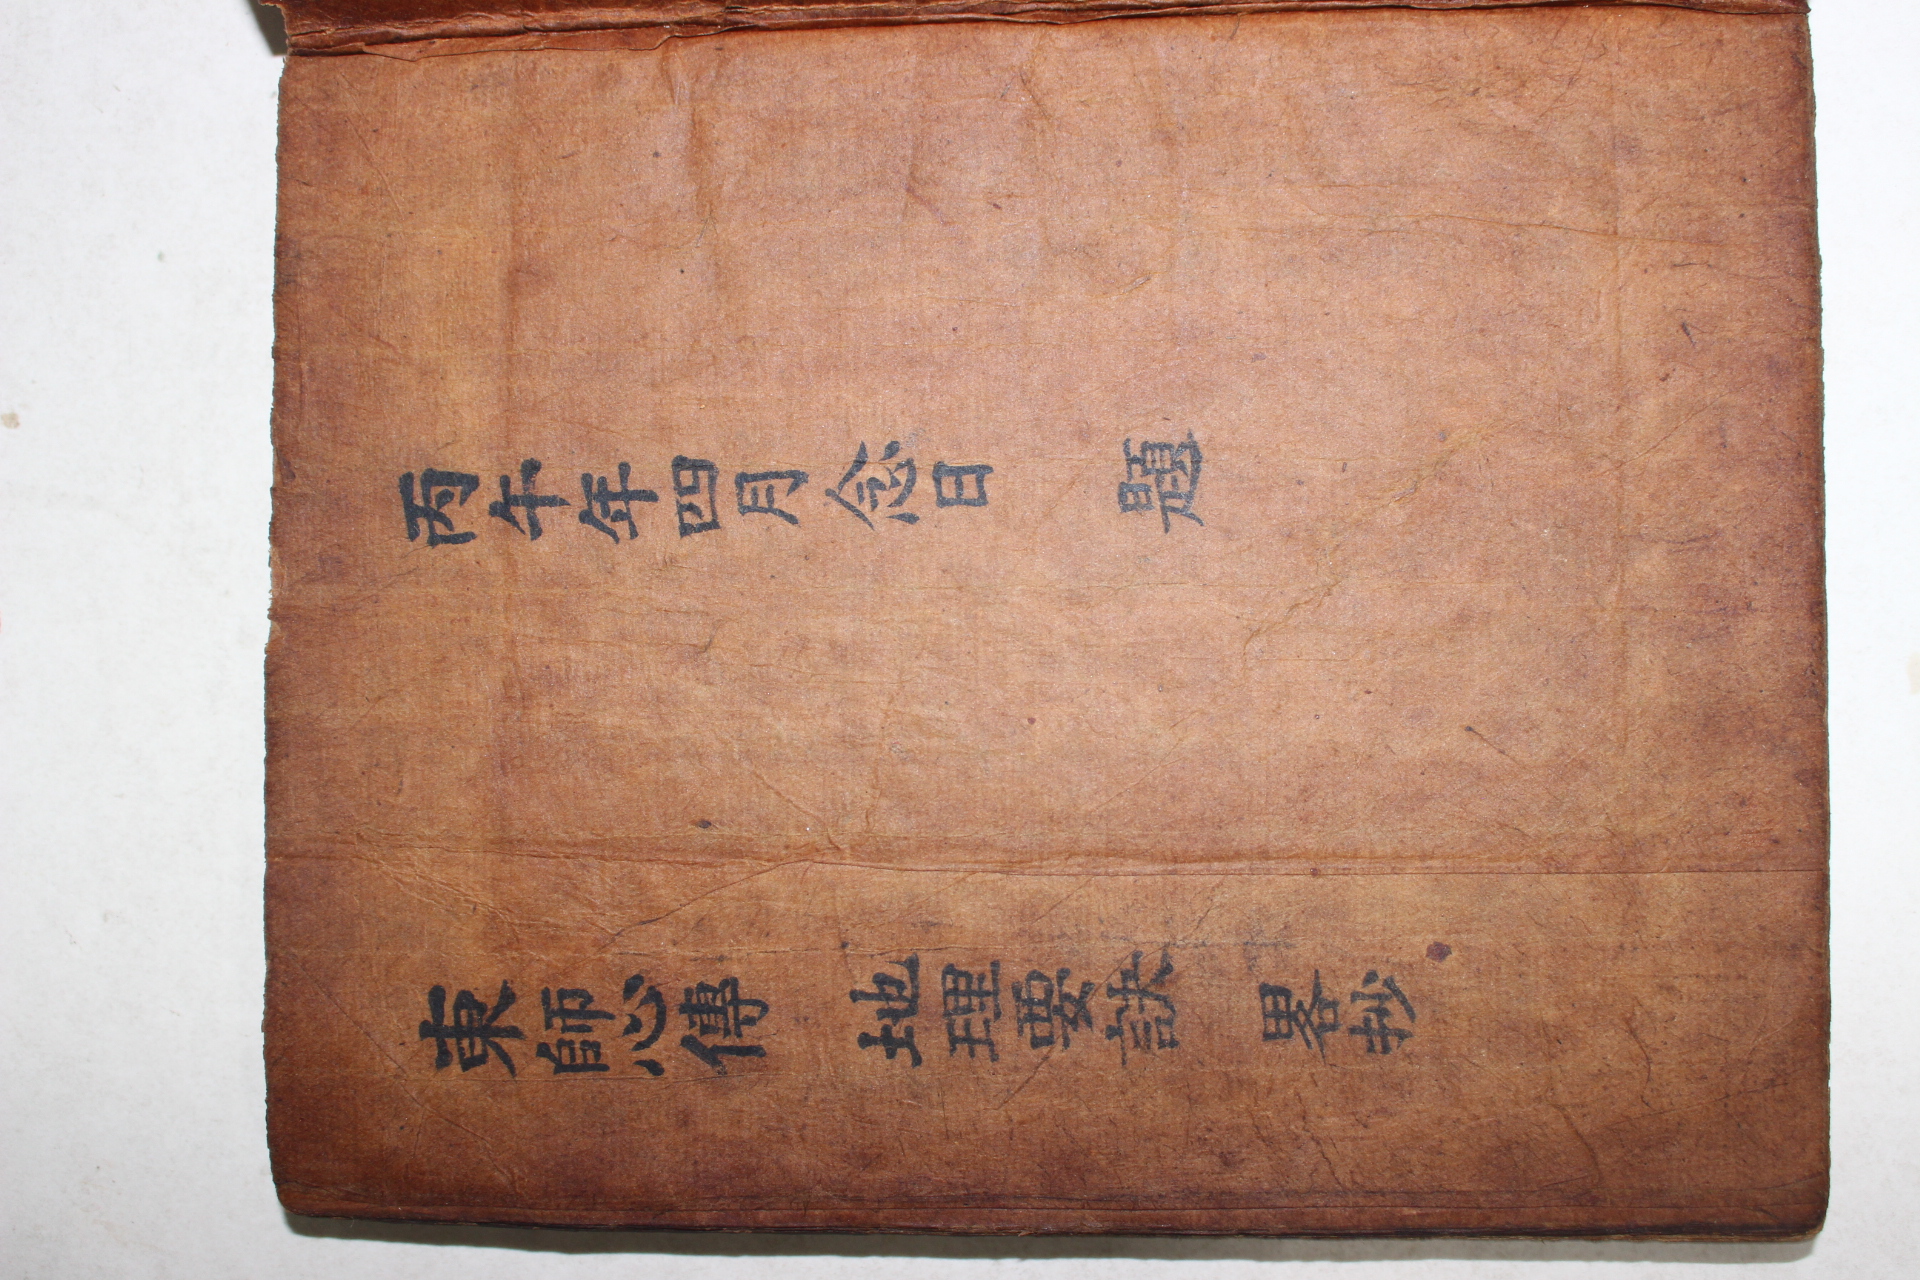 丙午年四月念日 題
東師心傳 地理要訣 畧抄